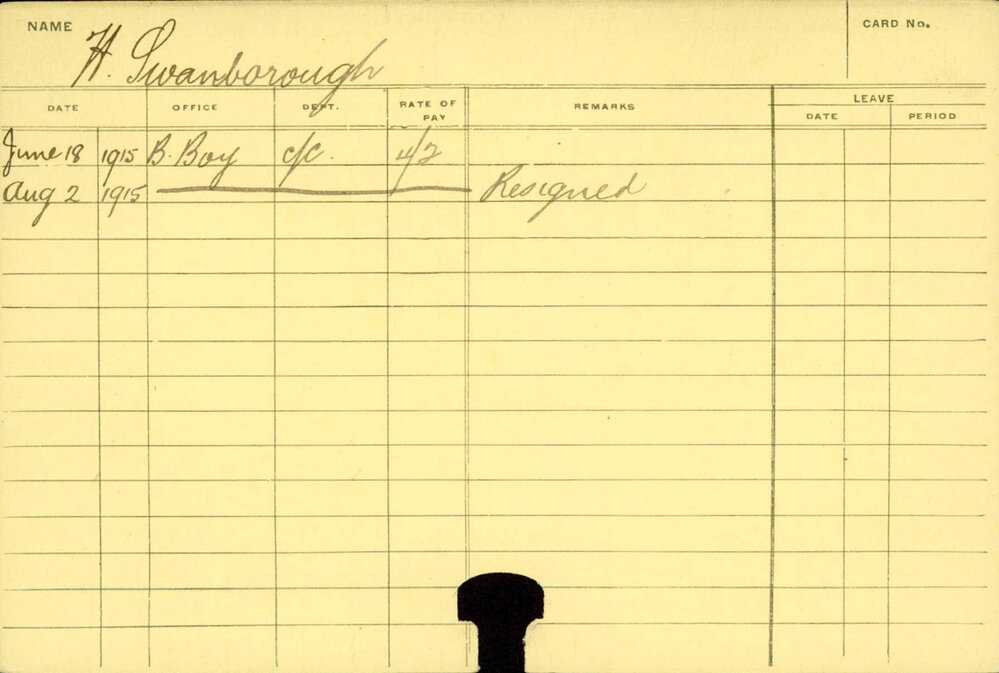 NAME H. Swanborough CARD No.
DATE OFFICE DEPT. RATE OF PAY REMARKS LEAVE
DATE PERIOD
June 18 1915 B. Boy c/c. 4/2
Aug 2 1915 Resigned